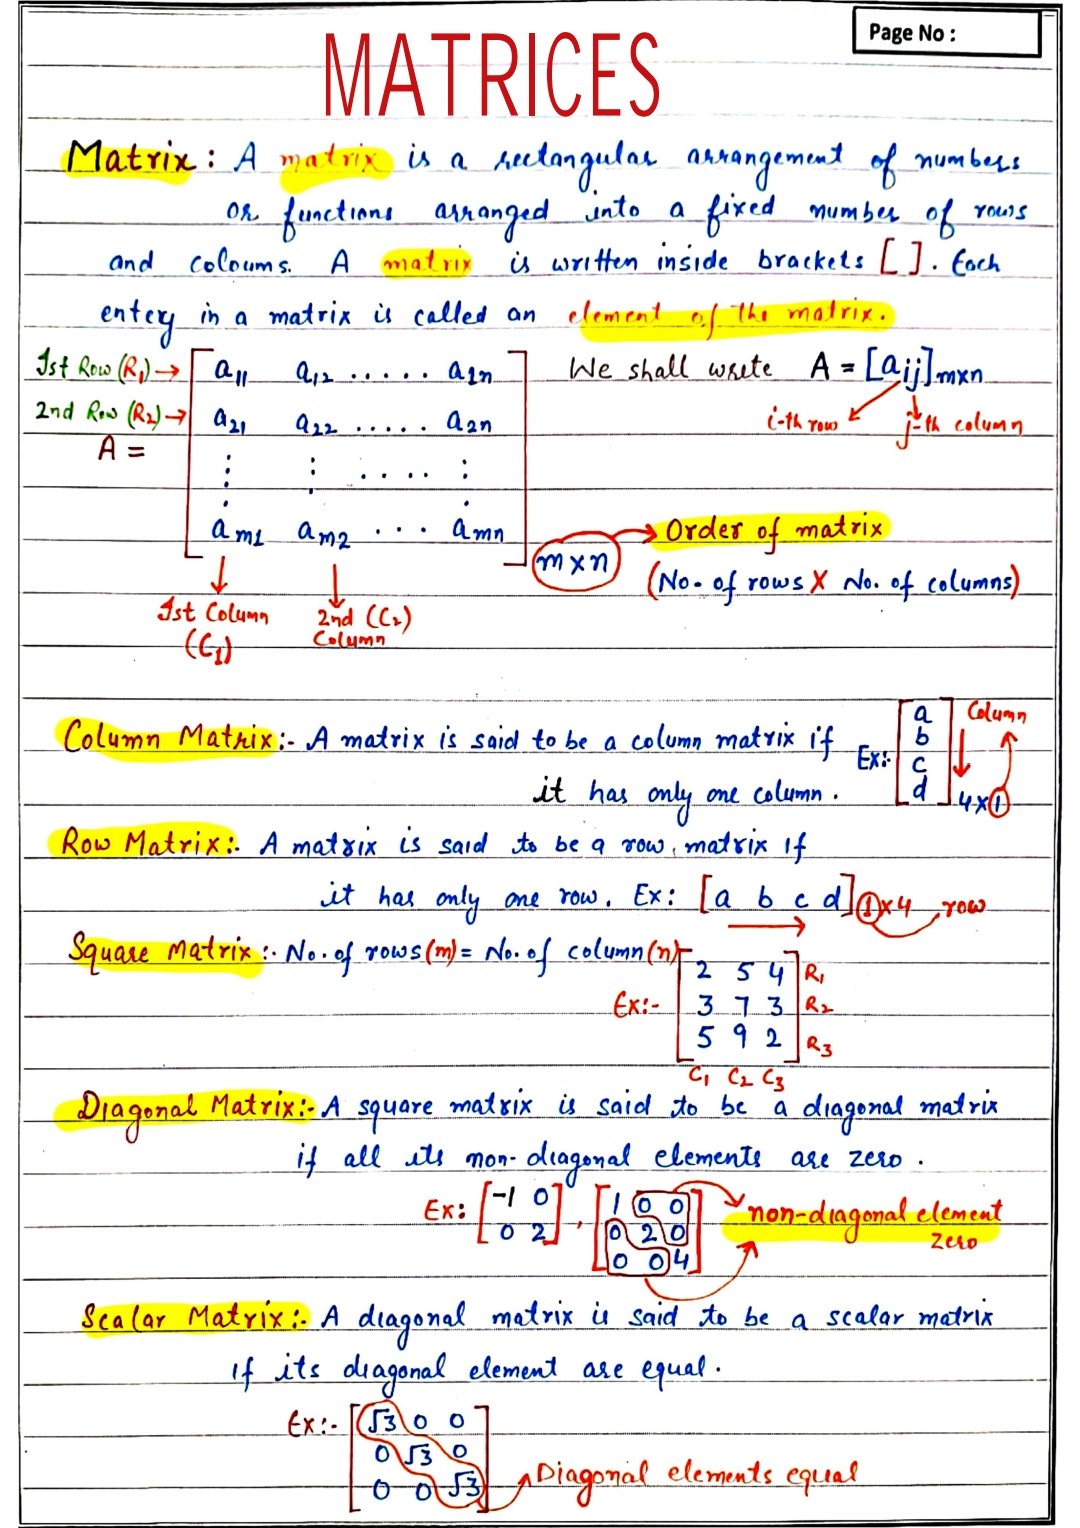 Page No :
MATRICES
Matrix : A matrix is a rectangular arrangement of numbers
or functions arranged into a fixed number of rows
and coloums. A matrix is written inside brackets [ ]. Each
entery in a matrix is called an element of the matrix.
1st Row (R₁) → a₁₁ a₁₂ ..... a₁ₙ We shall write A = [aᵢⱼ]ₘₓₙ
2nd Row (R₂) → a₂₁ a₂₂ ..... a₂ₙ i-th row j-th column
A =
⋮ ⋮ .... ⋮
aₘ₁ aₘ₂ ... aₘₙ m×n → Order of matrix
(No. of rows X No. of columns)
1st Column 2nd (C₂)
(C₁) Column
Column Matrix:- A matrix is said to be a column matrix if Ex:- [a b c d] Column
it has only one column. 4×1
Row Matrix:- A matrix is said to be a row matrix if
it has only one row. Ex: [a b c d] 1×4 row
Square Matrix:- No. of rows (m) = No. of column (n)
2 5 4 R₁
Ex:- 3 7 3 R₂
5 9 2 R₃
C₁ C₂ C₃
Diagonal Matrix:- A square matrix is said to be a diagonal matrix
if all its non-diagonal elements are zero.
Ex: [-1 0 , [1 0 0 non-diagonal element
0 2] 0 2 0 zero
0 0 4]
Scalar Matrix:- A diagonal matrix is said to be a scalar matrix
if its diagonal element are equal.
Ex:- [√3 0 0
0 √3 0
0 0 √3] Diagonal elements equal